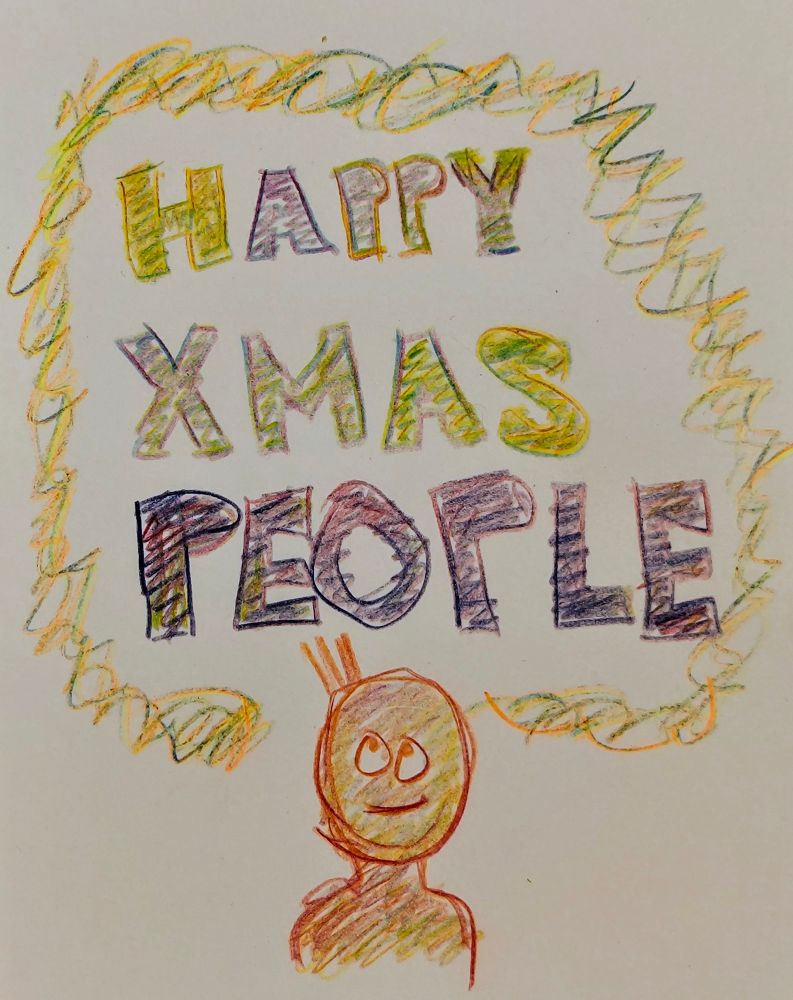 HAPPY
XMAS
PEOPLE